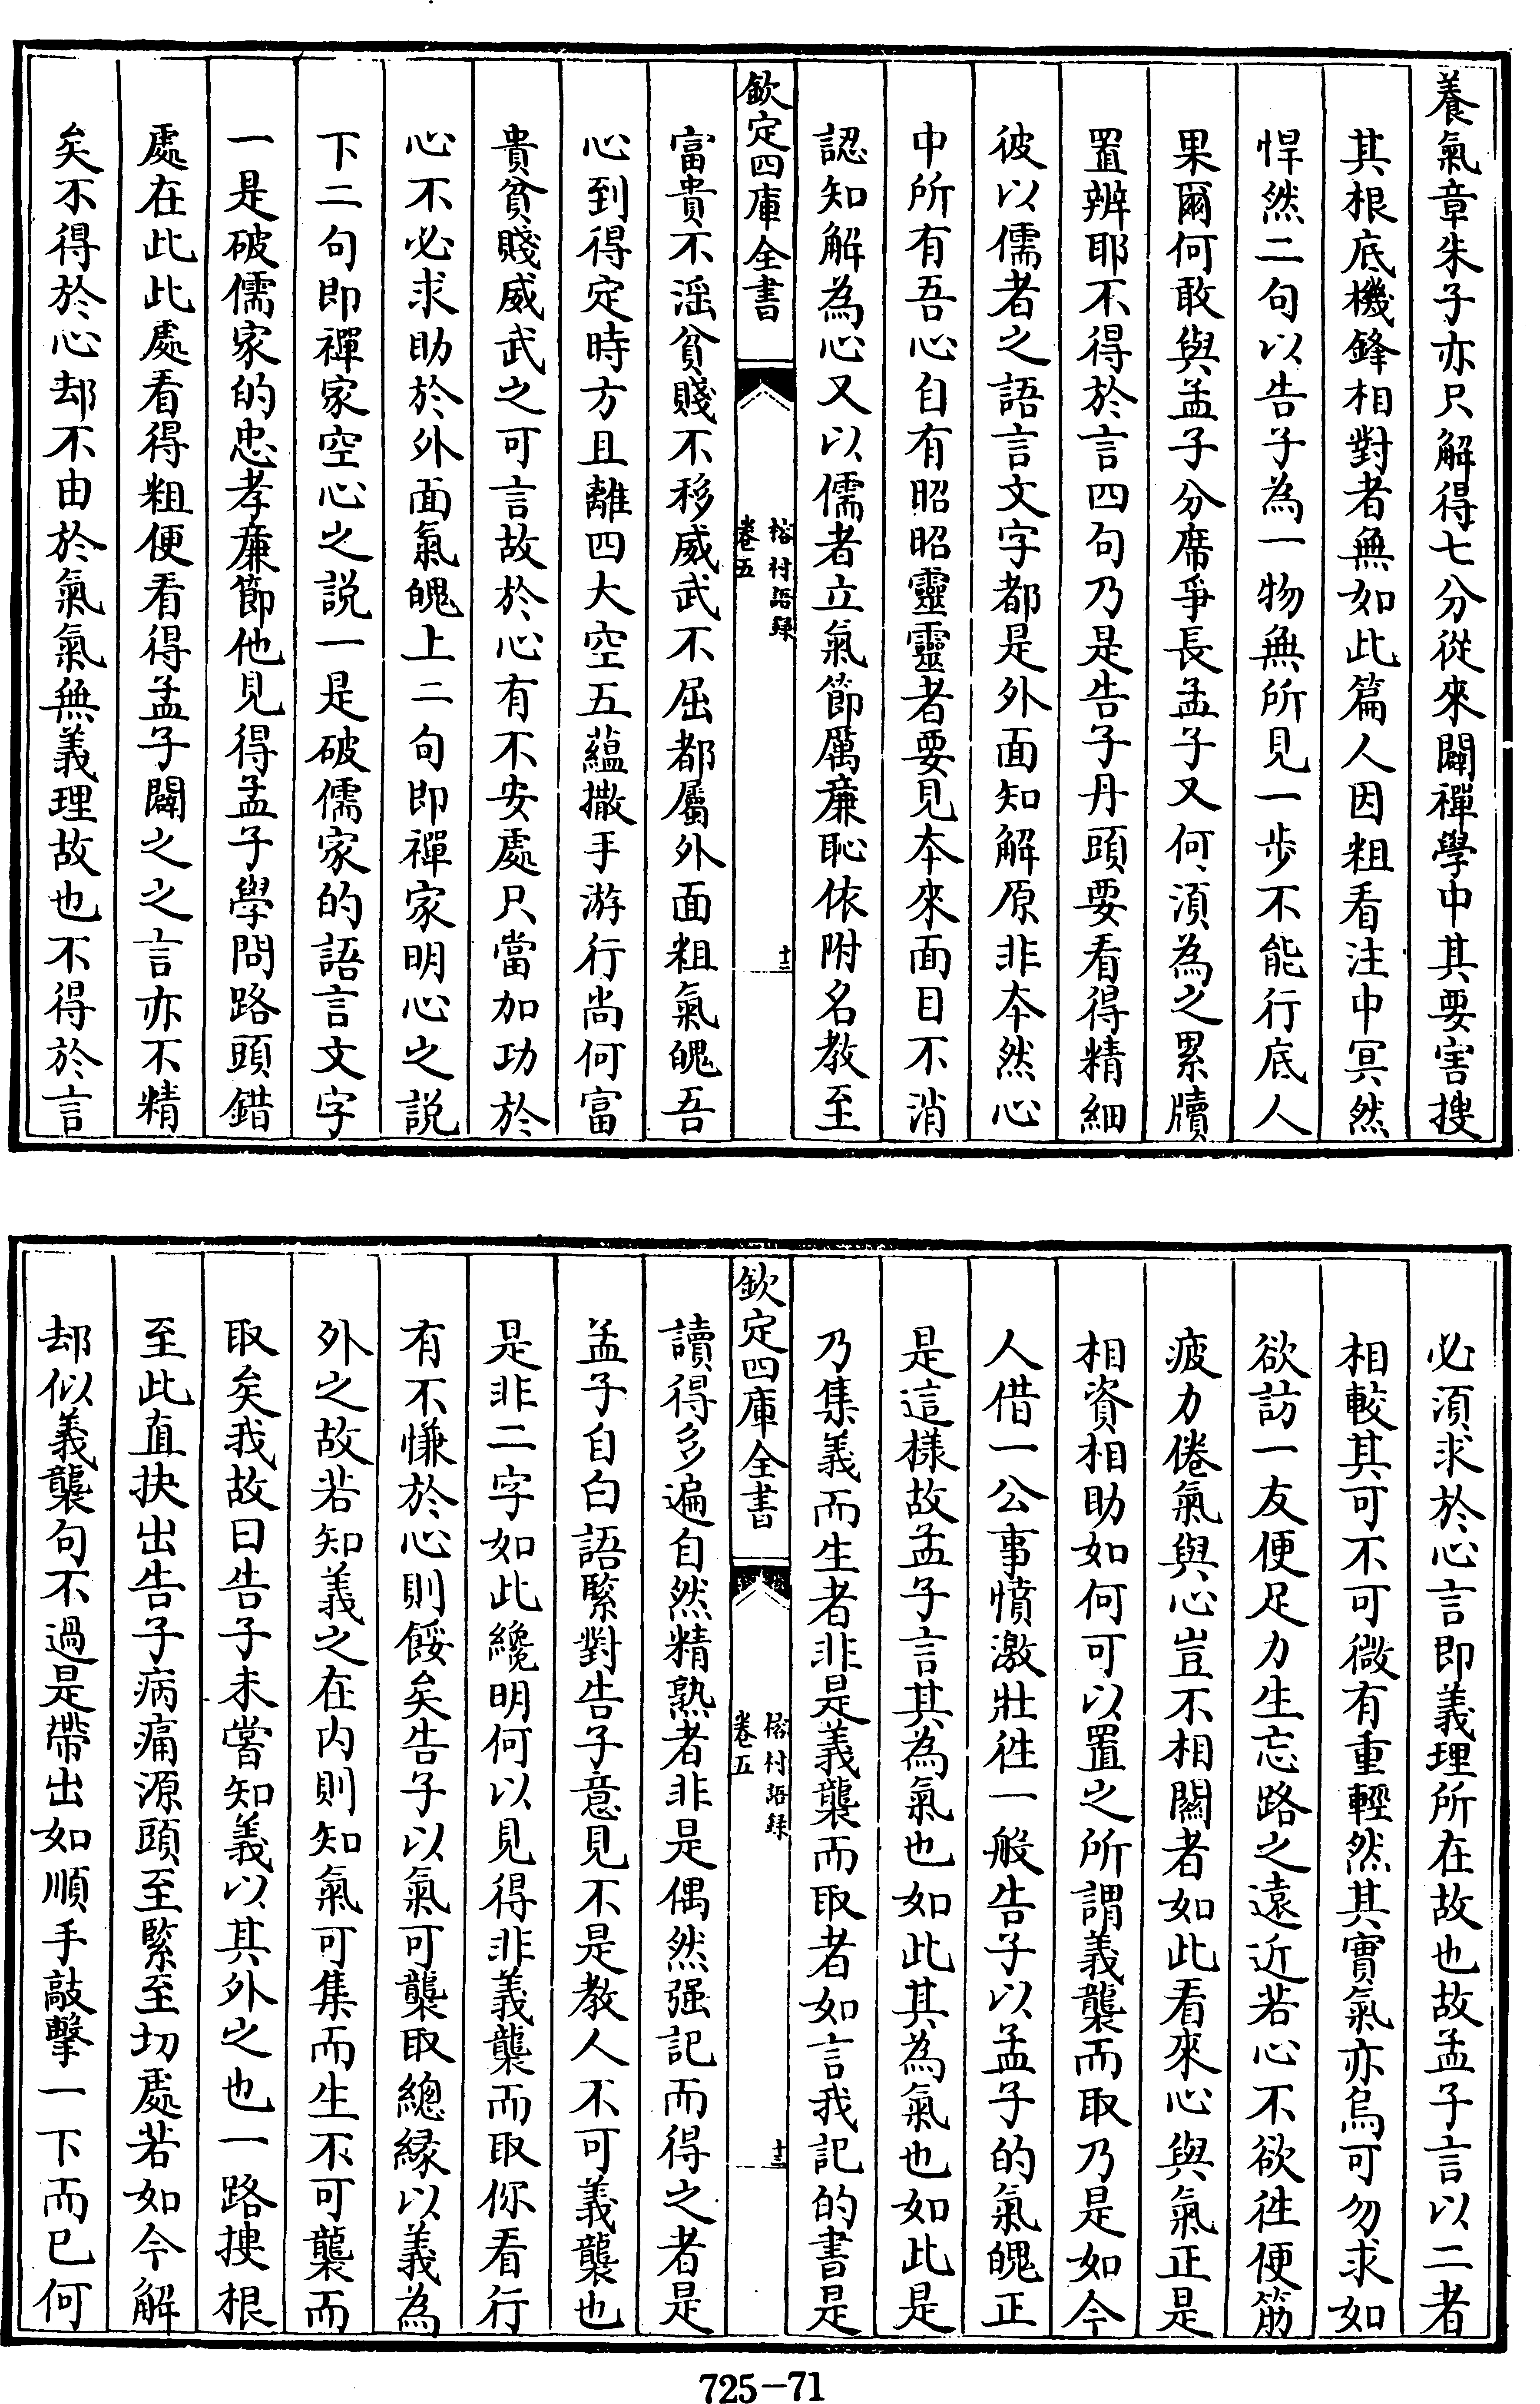 養氣章朱子亦只解得七分從來闢禪學中其要害搜
其根底機鋒相對者無如此篇人因粗看注中冥然
悍然二句以告子為一物無所見一步不能行底人
果爾何敢與孟子分席爭長孟子又何須為之累牘
置辨耶不得於言四句乃是告子丹頭要看得精細
彼以儒者之語言文字都是外面知解原非本然心
中所有吾心自有昭昭靈靈者要見本來面目不消
認知解為心又以儒者立氣節厲廉恥依附名教至
欽定四庫全書
榕村語録
卷五
十二
富貴不滛貧賤不移威武不屈都屬外面粗氣魄吾
心到得定時方且離四大空五藴撒手游行尚何富
貴貧賤威武之可言故於心有不安處只當加功於
心不必求助於外面氣魄上二句即禪家明心之説
下二句即禪家空心之説一是破儒家的語言文字
一是破儒家的忠孝廉節他見得孟子學問路頭錯
處在此此處看得粗便看得孟子闢之之言亦不精
矣不得於心却不由於氣氣無義理故也不得於言
必須求於心言即義理所在故也故孟子言以二者
相較其可不可微有重輕然其實氣亦烏可勿求如
欲訪一友便足力生忘路之遠近若心不欲往便筋
疲力倦氣與心豈不相關者如此看來心與氣正是
相資相助如何可以置之所謂義襲而取乃是如今
人借一公事憤激壯往一般告子以孟子的氣魄正
是這樣故孟子言其為氣也如此其為氣也如此是
乃集義而生者非是義襲而取者如言我記的書是
欽定四庫全書
榕村語録
卷五
十三
讀得多遍自然精熟者非是偶然强記而得之者是
孟子自白語緊對告子意見不是教人不可義襲也
是非二字如此纔明何以見得非義襲而取你看行
有不慊於心則餒矣告子以氣可襲取總緣以義為
外之故若知義之在内則知氣可集而生不可襲而
取矣我故曰告子未嘗知義以其外之也一路搜根
至此直抉出告子病痛源頭至緊至切處若如今解
却似義襲句不過是帶出如順手敲擊一下而已何
725—71